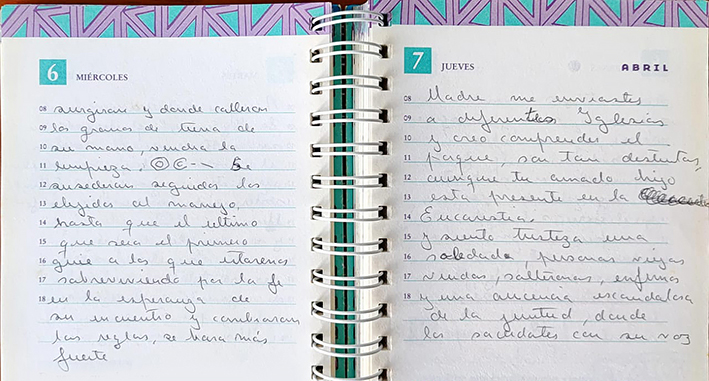 6 MIÉRCOLES
08 surgiran y donde calleran
09 los granos de tierra de
10 su mano, vendra la
11 limpieza. Se
12 susederan seguidos los
13 elejidos al manejo,
14 hasta que el ultimo
15 que sera el primero
16 guie a los que estaremos
17 sobreviviendo por la fe
18 en la esperanza de
su encuentro y cambiaran
las reglas, se hara más
fuerte
7 JUEVES ABRIL
08 Madre me enviastes
09 a diferentes Yglesias
10 y creo comprender el
11 porque, son tan destintas,
12 aunque tu amado hijo
13 esta presente en la
14 Eucarestia.
15 y siento tristeza una
16 soledad, personas viejas
17 viudas, solteronas, enfermas
18 y una ausencia escandalosa
de la juventud, donde
los sacerdotes con su voz